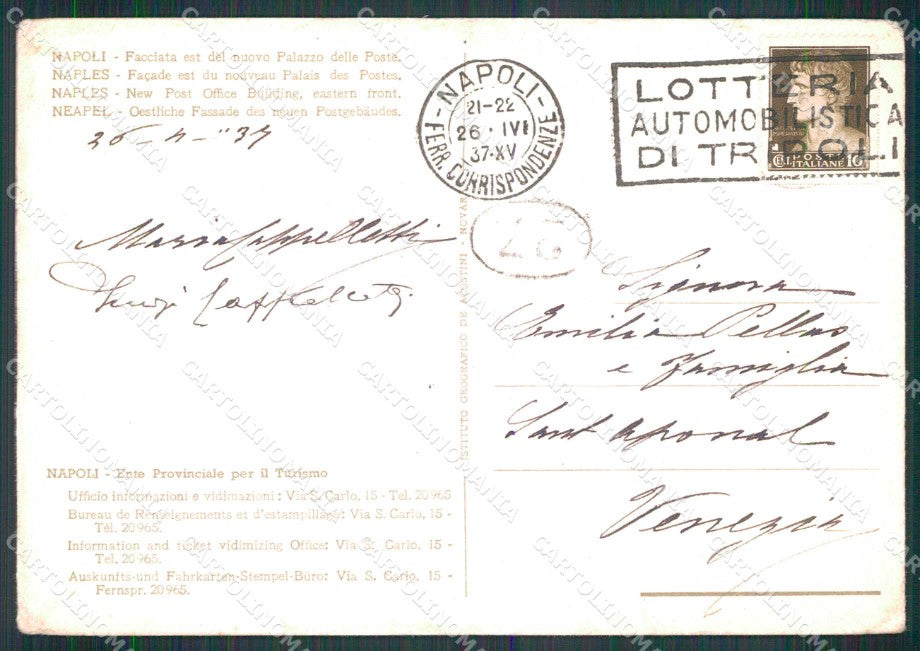 NAPOLI - Facciata est del nuovo Palazzo delle Poste.
NAPLES - Façade est du nouveau Palais des Postes.
NAPLES - New Post Office Building, eastern front.
NEAPEL - Oestliche Fassade des neuen Postgebäudes.
26-4-"37
Maria Cappelletti
Luigi Cappelletti
NAPOLI - Ente Provinciale per il Turismo
Ufficio informazioni e vidimazioni: Via S. Carlo, 15 - Tel. 20965
Bureau de Renseignements et d'estampillage: Via S. Carlo, 15 -
Tél. 20965.
Information and ticket vidimizing Office: Via S. Carlo, 15 -
Tel. 20965.
Auskunfts-und Fahrkarten-Stempel-Büro: Via S. Carlo, 15 -
Fernspr. 20965.
ISTITUTO GEOGRAFICO DE AGOSTINI - NOVARA
NAPOLI
21-22
26 · IV
37·XV
FERR. CORRISPONDENZE
LOTTERIA
AUTOMOBILISTICA
DI TRIPOLI
POSTE
ITALIANE 10
Signora
Emilia Pellas
e Famiglia
Sant'Aponal
Venezia
CARTOLINOMANIA